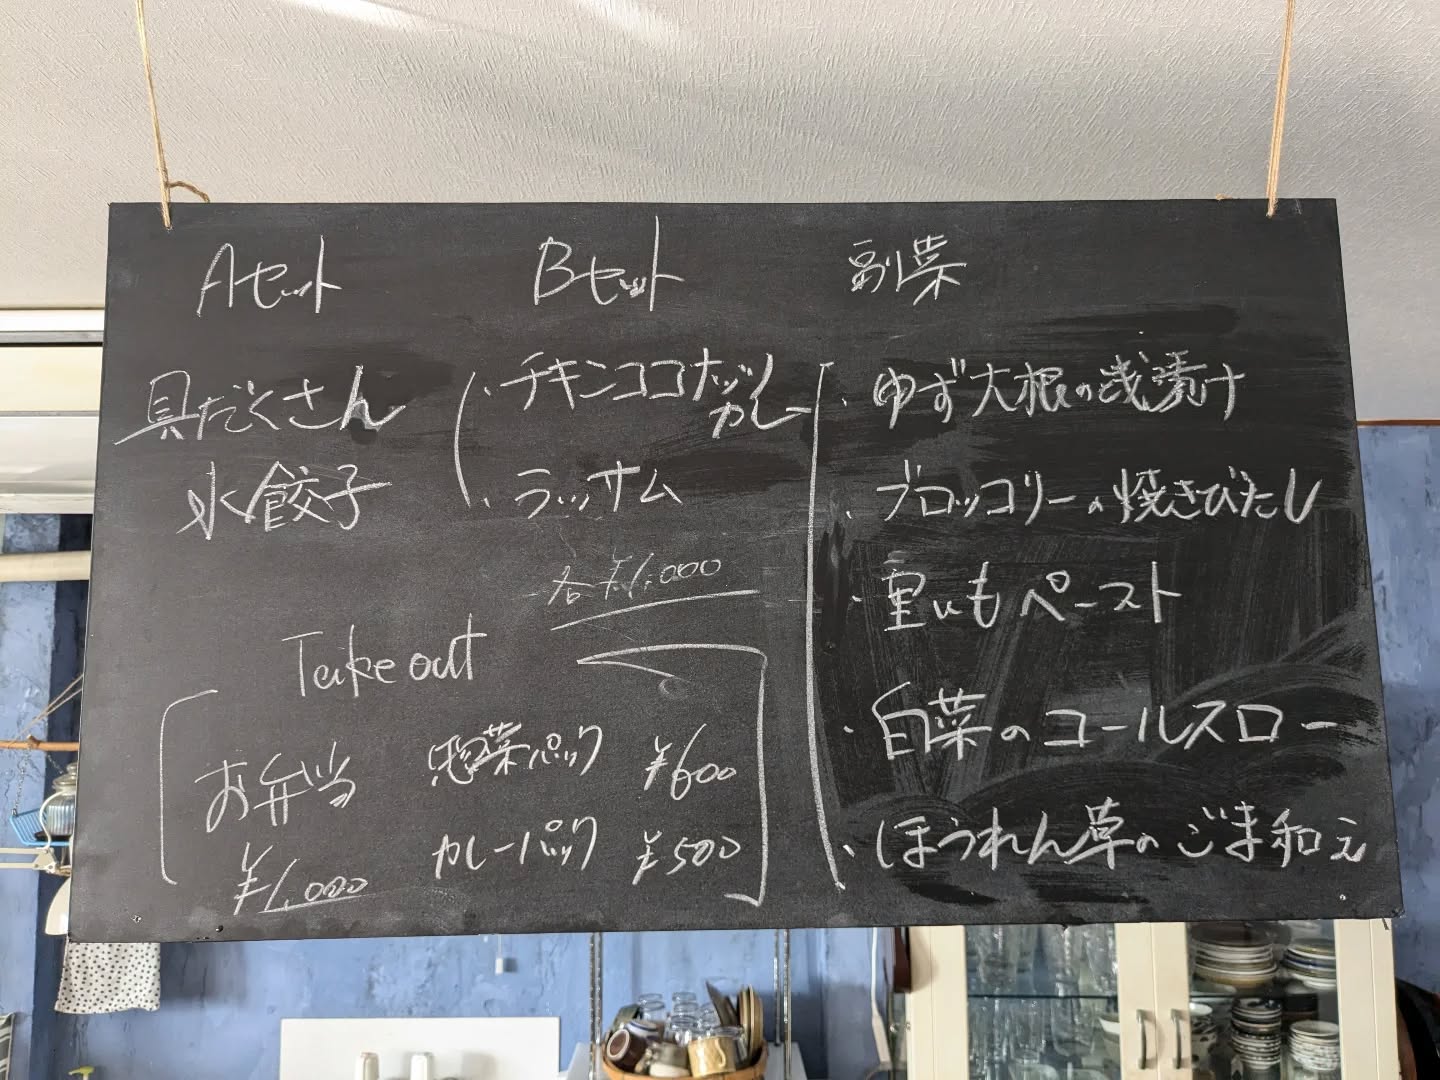 Aセット
具だくさん
水餃子
Bセット
・チキンココナッツ
カレー
・ラッサム
各¥1,000
副菜
・ゆず大根の浅漬け
・ブロッコリーの焼きびたし
・里いもペースト
・白菜のコールスロー
・ほうれん草のごま和え
Take out
お弁当
¥1,000
惣菜パック ¥600
カレーパック ¥500